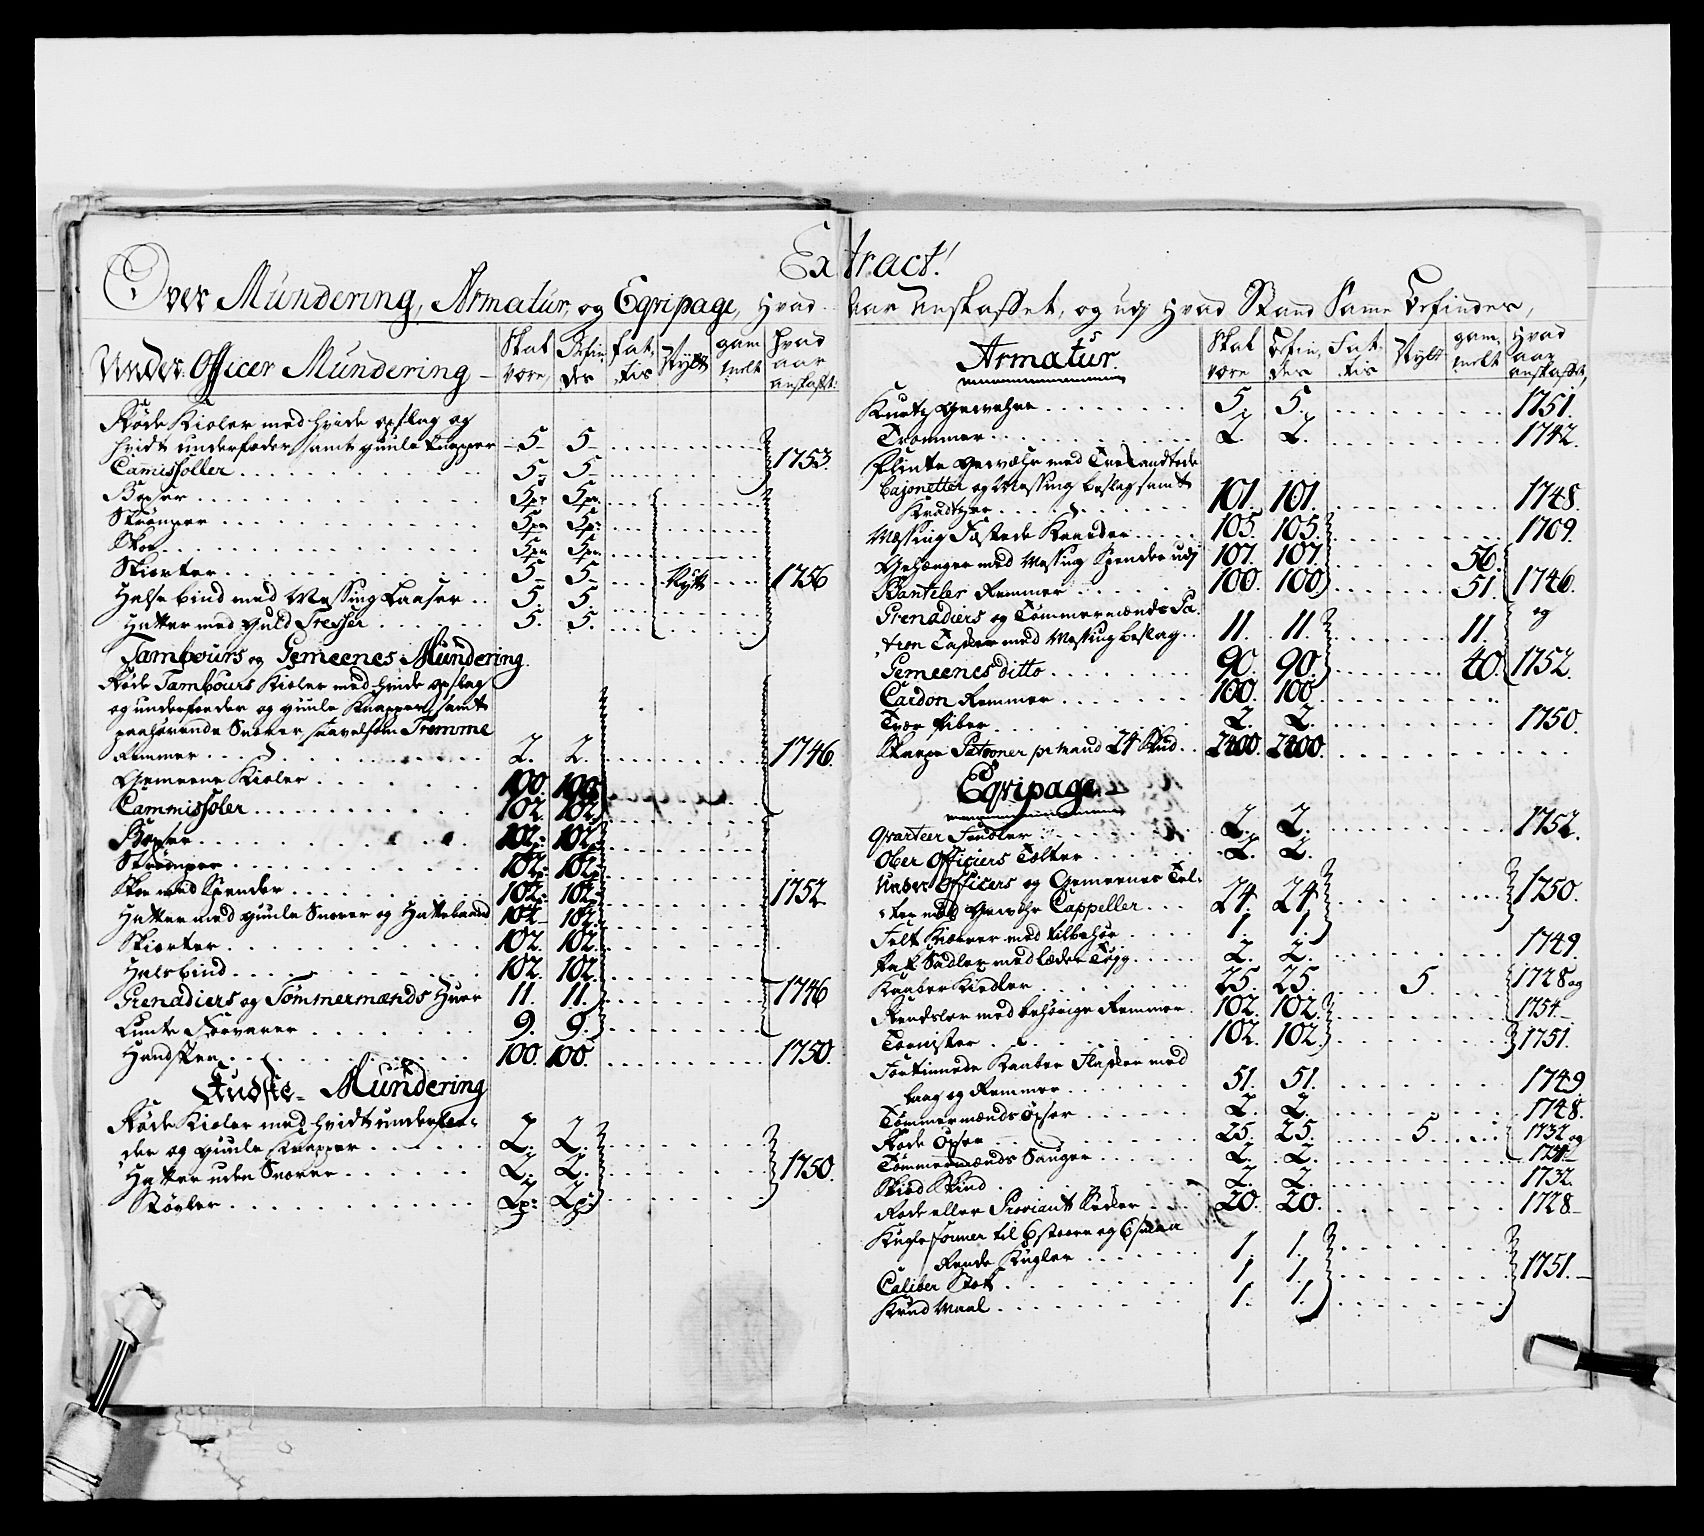 Extract!
Over Mündering, Armatur, og Eqvipage, Hvad Aar Anskaffet, og udj Hvad Stand Same befindes,
Under Officer Mündering Skal være, Befindes fattis Nytt gammelt Hvad aar anskafft:
Røde Kioler med hvide opslag og
hvidt underfoder, samt guule knapper 5 5
Camissoller 5 5 1753.
Boxer 5pr 5pr
Strømper 5pr 5pr
Skoe 5pr 5pr
Skiorter 5 5 Nytt 1756
Halsbind med Messing Laaser 5 5
Hatter med Guld Tresser 5. 5.
Tambours og Gemeenes Mündering
Røde Tambours Kioler med hvide opslag
og underfoeder og guule Knapper, samt
paahørende Snorer saavelsom Tromme
Remmer 2. 2. 1746.
Gemeene Kioler 100. 100.
Cammissoler 102. 102.
Boxser 102. 102.
Strømper 102. 102.
Skoe med Spender 102. 102. 1752
Hatter med guule Snorer og Hattebaand 102 102.
Skiorter 102. 102.
Halsbind 102. 102.
Grenadiers og Tømmermænds Huer 11. 11. 1746
Lunte Forvarer 9. 9.
Handsker 100. 100. 1750.
Kudske Mündering
Røde Kioler med hvidt underfoe-
der og guule Knapper 2. 2.
Hatter uden Snorer 2. 2. 1750.
Støvler 2p: 2p:
Armatur. Skal være Befindes Fattis Nytt gammelt Hvad aar anskaffet,
Kurtz Gewehre 5. 5. 1751.
Trommer 2. 2. 1742.
Flinte Gewæhr med Trekandtede
Bajonetter og Messing beslag samt
Kradtzer 101. 101. 1748.
Messing Fæstede Kaarder 105. 105. 1709.
Gehænger med Messing Spender udj 107. 107. 56.
Bantelér Remmer 100. 100. 51. 1746.
Grenadiers og Tømmermænds Pa- og
tron Tasker med Messing beslag 11. 11. 11.
Gemeenes ditto 90. 90. 40. 1752.
Cardon Remmer 100. 100.
Tvær Piber 2. 2. 1750.
Skarpe Patroner pr Mand 24 Skud 2400. 2400.
Eqvipage
Qvarteer Fendler 2. 2. 1752.
Ober Officiers Tælter 2. 2.
Under Officers og Gemeenes Tel-
ter med Gewehr Cappeller 24. 24 1750.
Felt Kiærrer med tilbehør 1. 1.
Pak Sadler med læder Tøyg 2. 2. 1749.
Kaaber Kiedler 25. 25. 5 1728 og
Rendsler med behørige Remmer 102. 102. 1754
Tornister 102. 102. 1751.
Fortinnede Kaaber Flasker med
laag og Remmer 51. 51. 1749
Tømmermænds Øxer 2. 2. 1748.
Røde Øxer 25. 25. 5 1732 og
Tømmermænds Sauger 2. 2.
Skiød Skind 2. 2. 1732.
Rode eller Proviant Sekker 20. 20. 1728
Kugle former til
Kugler 1. 1.
Caliber Stok 1 1. 1751.
Krud Maal 1. 1.